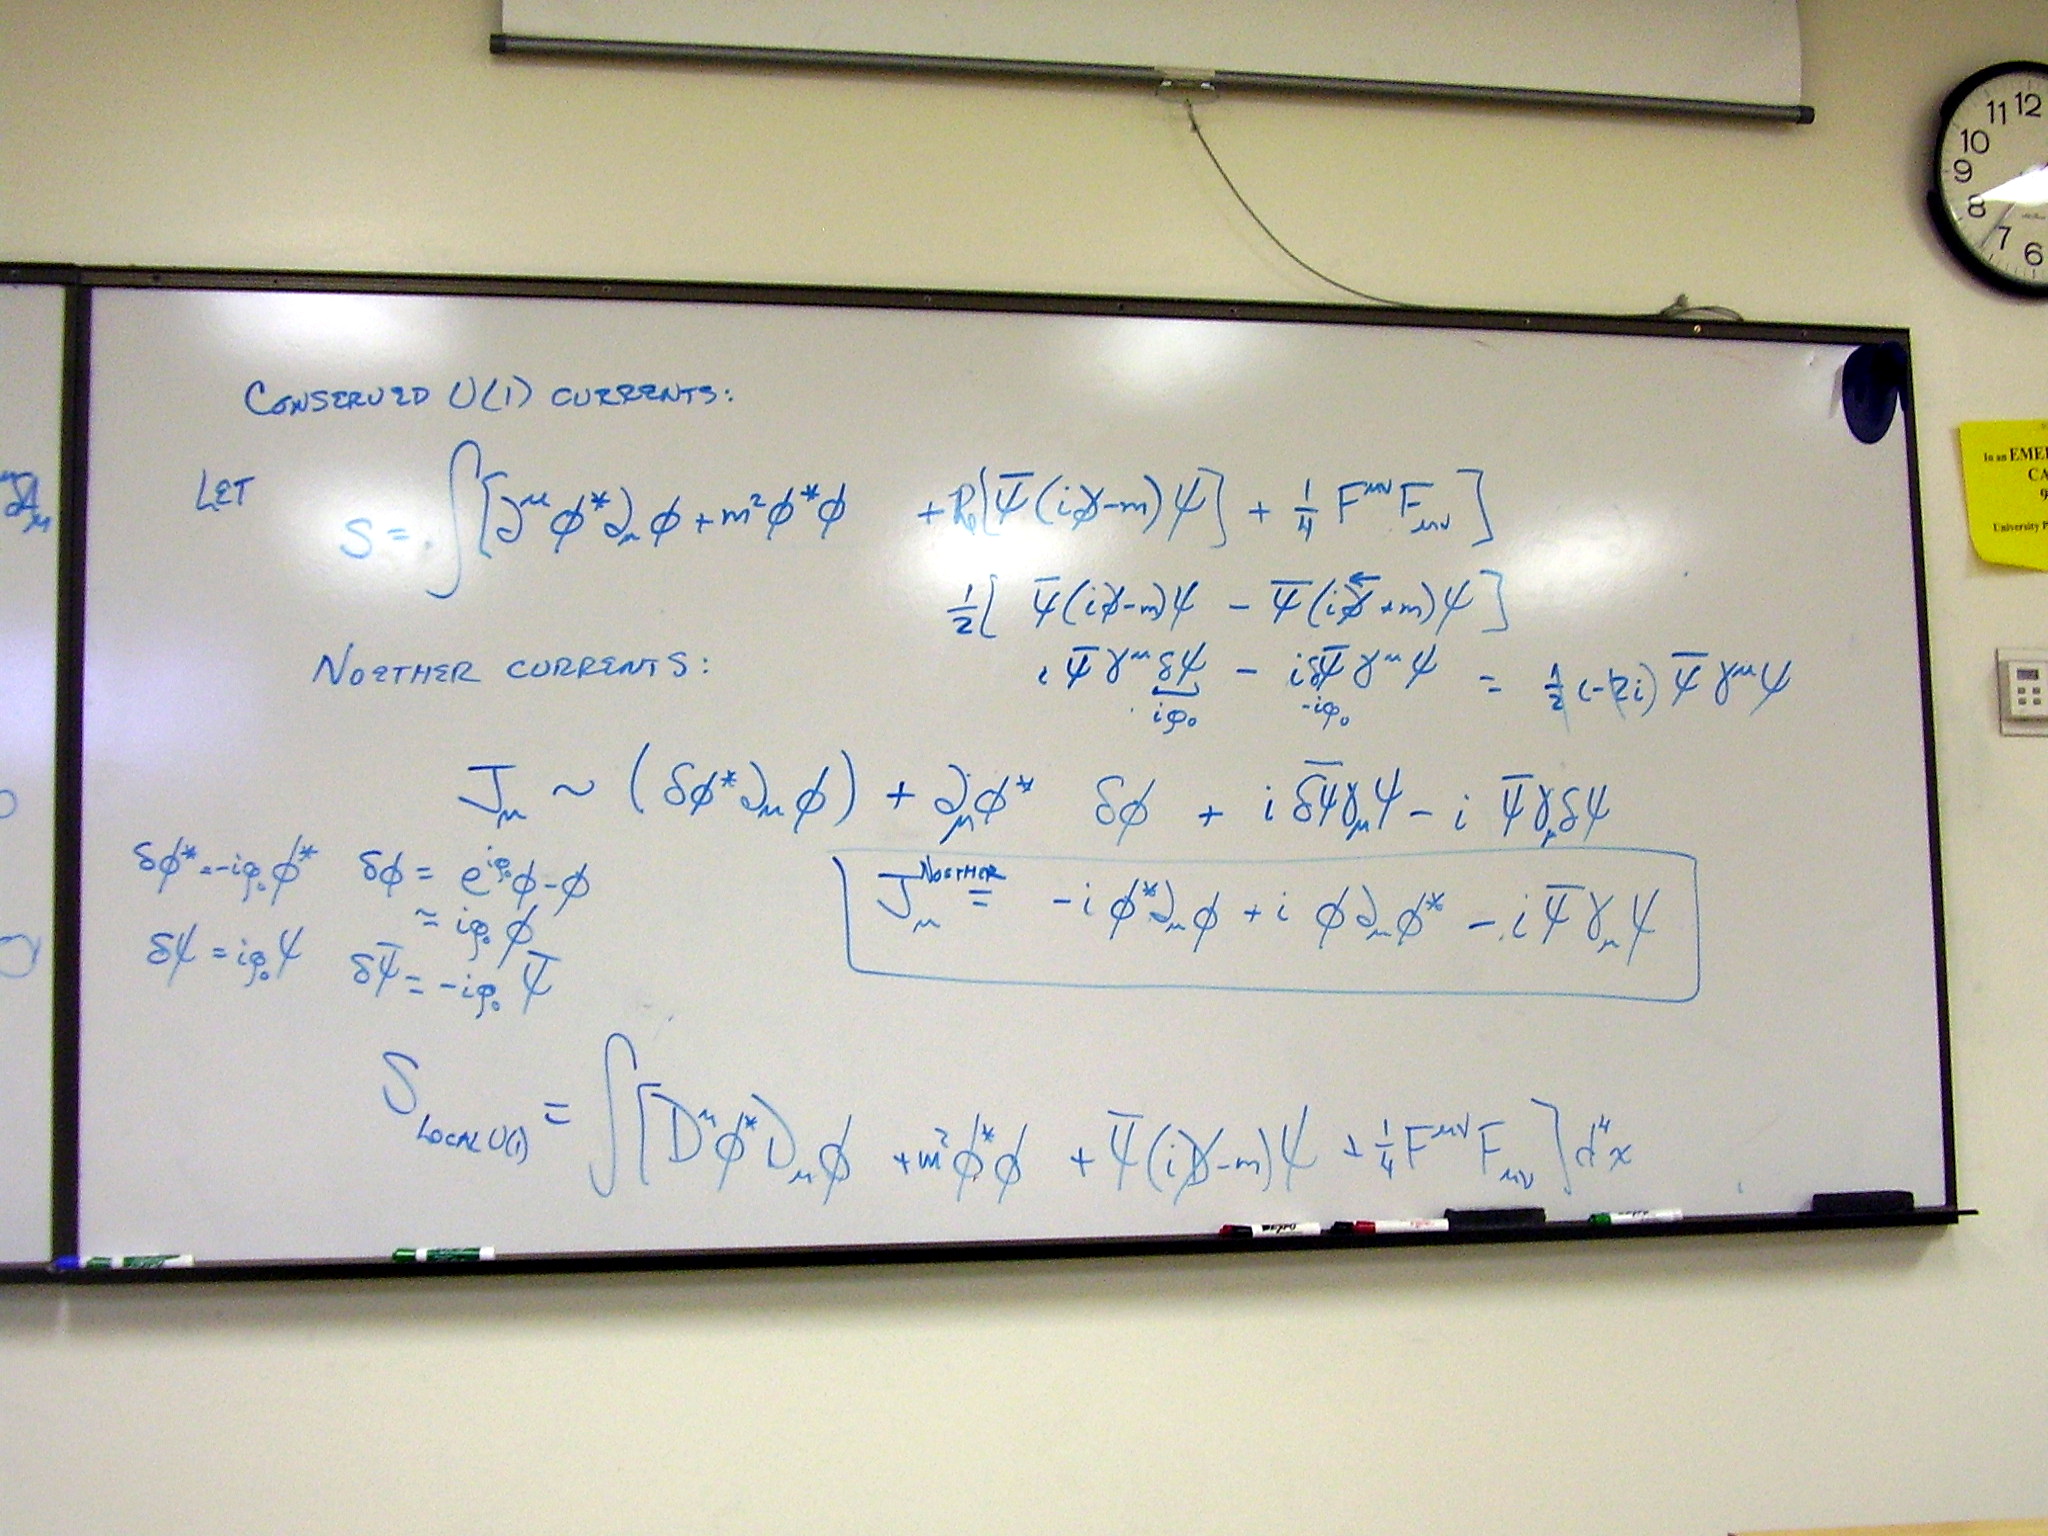 CONSERVED U(1) CURRENTS:
LET S = ∫[∂^μ φ* ∂_μ φ + m² φ*φ + Re[Ψ̄(i∂̸-m)Ψ] + 1/4 F^μν F_μν]
1/2[Ψ̄(i∂̸-m)Ψ - Ψ̄(i∂̸⃖+m)Ψ]
NOETHER CURRENTS:
i Ψ̄ γ^μ δΨ - i δΨ̄ γ^μ Ψ = 1/2 (-2i) Ψ̄ γ^μ Ψ
iφ₀ -iφ₀
J_μ ~ (δφ* ∂_μ φ) + ∂_μ φ* δφ + i δΨ̄ γ_μ Ψ - i Ψ̄ γ_μ δΨ
δφ* = -iφ₀ φ* δφ = e^{iφ₀} φ - φ
≈ iφ₀ φ
J_μ^NOETHER ≡ -i φ* ∂_μ φ + i φ ∂_μ φ* - i Ψ̄ γ_μ Ψ
δΨ = iφ₀ Ψ δΨ̄ = -iφ₀ Ψ̄
S_LOCAL U(1) = ∫[D^μ φ* D_μ φ + m² φ*φ + Ψ̄(iD̸-m)Ψ + 1/4 F^μν F_μν] d⁴x
11 12
10
9
8
7
6
In an EMER
CA
9
University P
EXPO